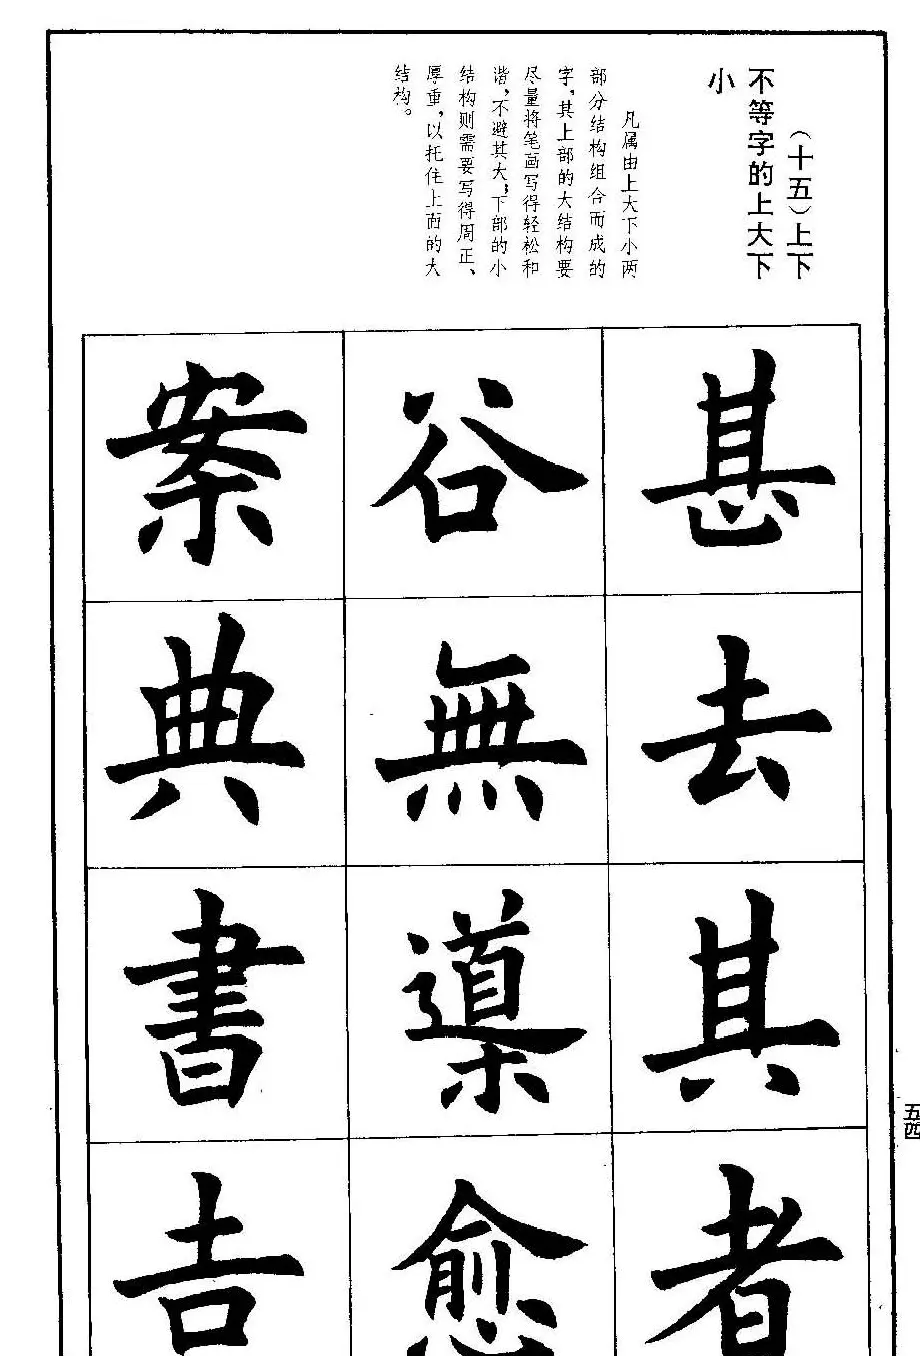 （十五）上下
不等字的上大下
小
凡属由上大下小两
部分结构组合而成的
字，其上部的大结构要
尽量将笔画写得轻松和
谐，不避其大；下部的小
结构则需要写得周正、
厚重，以托住上面的大
结构。
甚去其者
谷無愈
案典書吉
五四